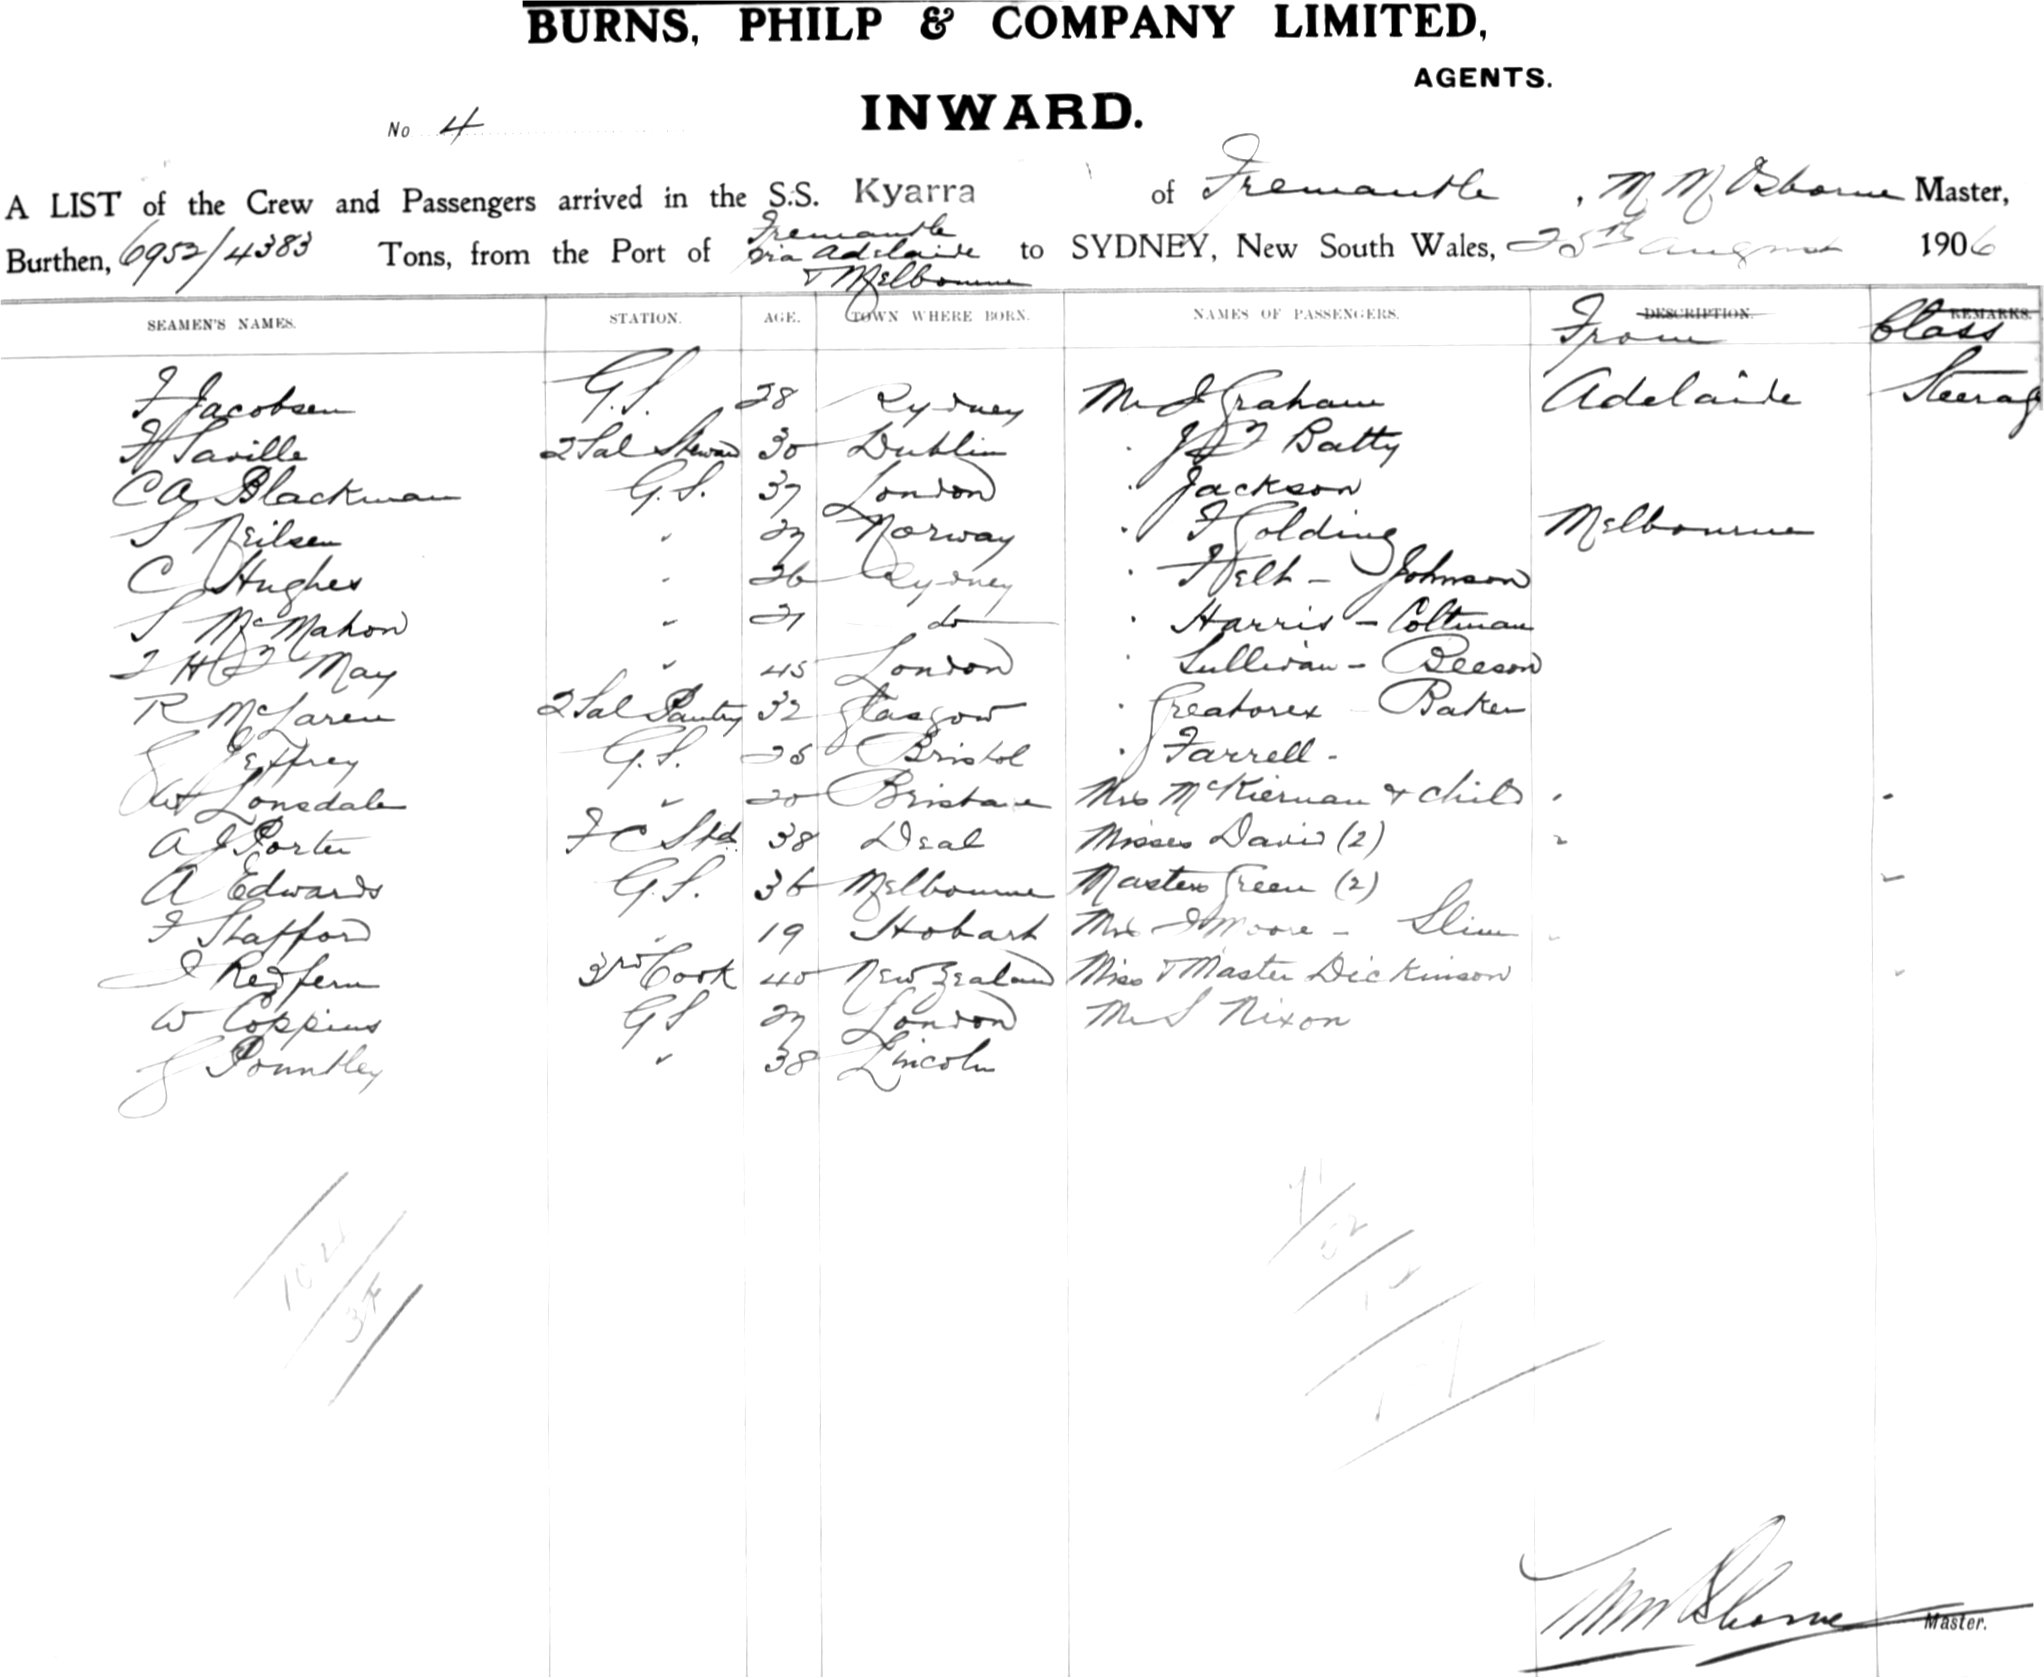 BURNS, PHILP & COMPANY LIMITED,
AGENTS.
INWARD.
No 4
A LIST of the Crew and Passengers arrived in the S.S. Kyarra of Fremantle, M M Osborne Master,
Burthen, 6952/4383 Tons, from the Port of Fremantle via Adelaide & Melbourne to SYDNEY, New South Wales, 25th August 1906
SEAMEN'S NAMES. STATION. AGE. TOWN WHERE BORN. NAMES OF PASSENGERS. DESCRIPTION. From REMARKS. Class
F Jacobsen G.S. 28 Sydney Mr J Graham Adelaide Steerag
H Saville 2 Sal Steward 30 Dublin " Batty
C A Blackman G.S. 37 London " Jackson
S Neilsen " 27 Norway " F Golding Melbourne
C Hughes " 26 Sydney " Johnson
S McMahon " 21 do " Harris - Coltman
May " 45 London " Sullivan - Beeson
R McLaren 2 Sal Pantry 32 Glasgow " Greatorex - Baker
G Jeffrey G.S. 25 Bristol " Farrell -
W Lonsdale " 20 Brisbane Mrs McKiernan & child " "
A J Porter F C Std 38 Deal Misses Davis (2) "
A Edwards G.S. 36 Melbourne Masters Green (2) "
F Stafford " 19 Hobart Mrs Moore - Slim "
J Redfern 3rd Cook 40 New Zealand Miss & Master Dickinson "
W Coppins GS 27 London Mr S Nixon
G Pountley " 38 Lincoln
M M Osborne
Master.